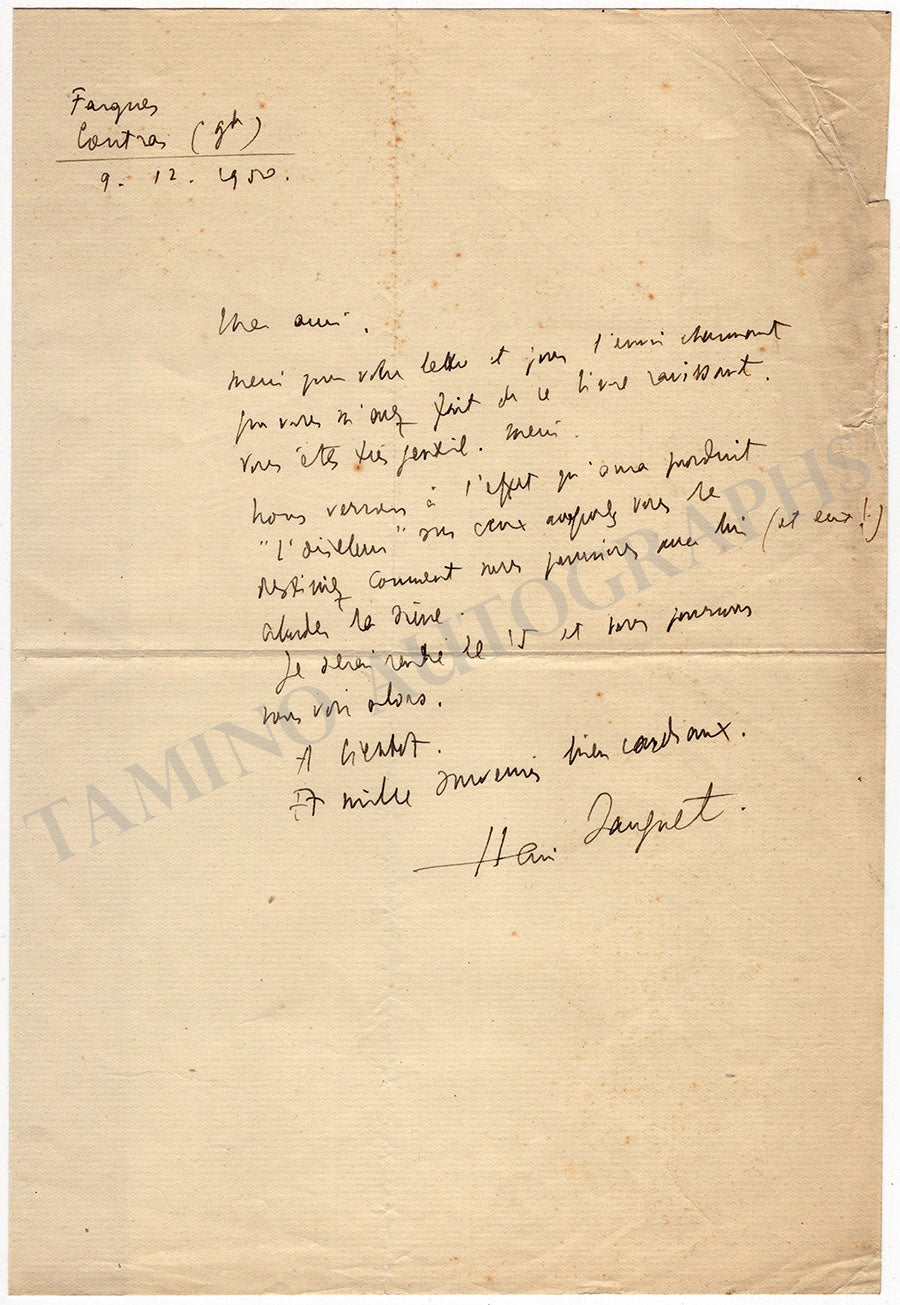 Fargues
Coutras (gde)
9. 12. 1950.
Cher ami,
merci pour votre lettre et pour l'envoi charmant
que vous m'avez fait de ce livre ravissant.
vous êtes très gentil. merci.
nous verrons à l'effet qu'aura produit
"l'oiseleur" sur ceux auxquels vous le
destinez comment nous pourrions avec lui (et eux!)
aborder la scène.
Je serai rentré le 15 et nous pourrons
nous voir alors.
A bientôt.
Et mille souvenirs bien cordiaux.
Henri Sauguet.
TAMINO AUTOGRAPHS